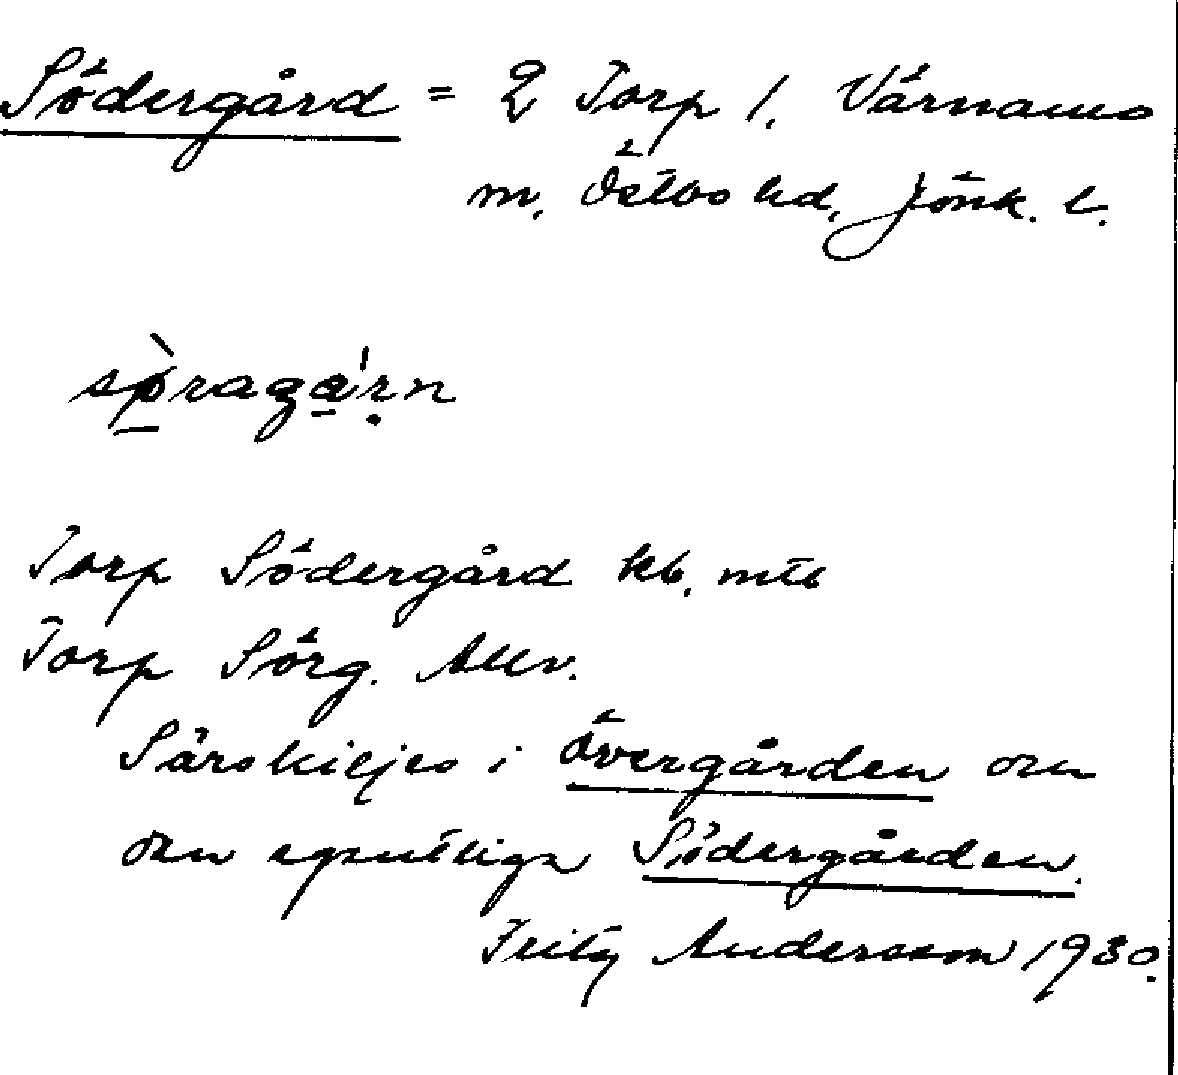 Södergård = 2 Torp 1. Värnamo
m. Östbo hd, Jönk. l.
Torp Södergård kb. mtb
Torp Sörg. Allv.
Särskiljes i övergården och
den egentliga Södergården.
Fritz Andersson 1930.